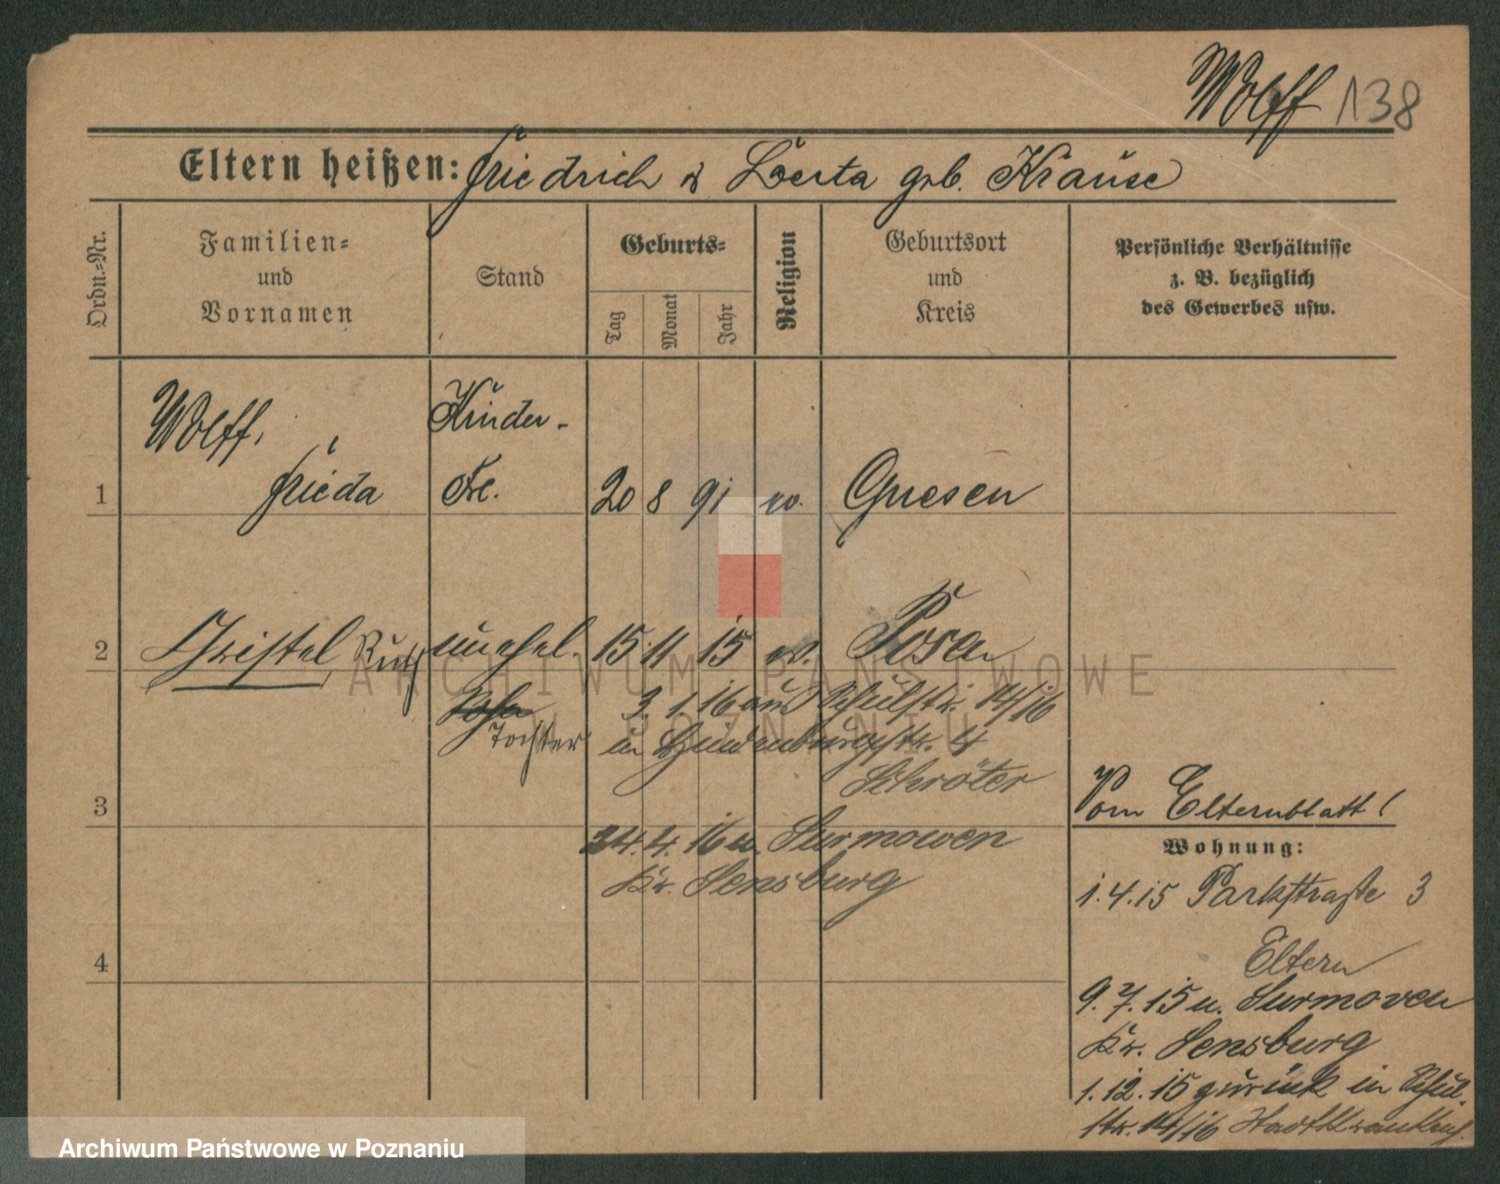 Wolff 138
Eltern heißen: Friedrich & Berta geb. Krause
Ordn.=Nr.
Familien=
und
Vornamen
Stand
Geburts=
Tag
Monat
Jahr
Religion
Geburtsort
und
Kreis
Persönliche Verhältnisse
z. B. bezüglich
des Gewerbes usw.
Wolff, Kinder-
1 Frieda Frl. 20 8 91 ev. Gnesen
2 Christel Ruth unehel. 15. 11 15 ev. Posen
Tochter
3. 1. 16 aus Schulstr. 14/16
in Hindenburgstr. 4
Schröter
3
24. 4. 16 n. Surmowen
Kr. Sensburg
4
Vom Elternblatt!
Wohnung:
1.4.15 Parkstraße 3
Eltern
9. 7. 15 n. Surmoven
Kr. Sensburg
1. 12. 15 zurück in Schul-
str. 14/16 Stadtkrankenh.
ARCHIWUM PAŃSTWOWE
W POZNANIU
Archiwum Państwowe w Poznaniu